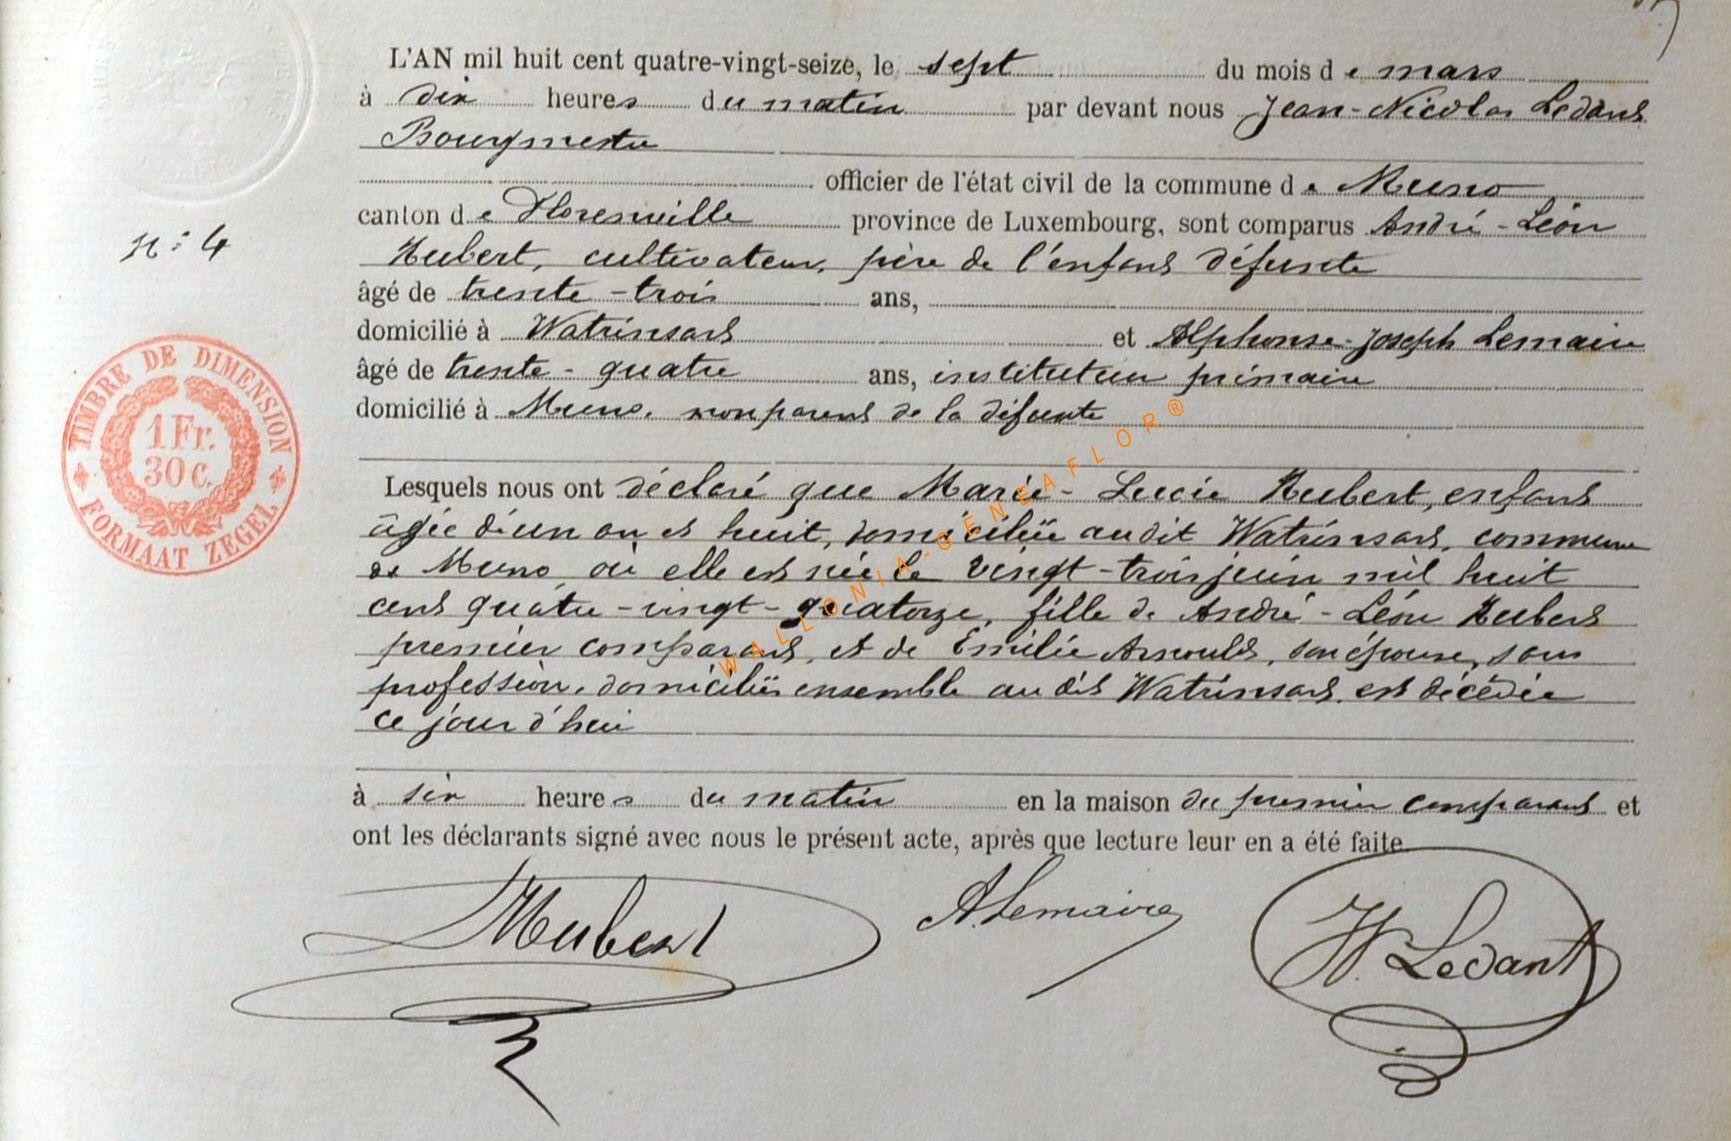 L'AN mil huit cent quatre-vingt-seize, le sept du mois de mars
à dix heures du matin par devant nous Jean-Nicolas Ledant
Bourgmestre
officier de l'état civil de la commune de Muno
canton de Florenville province de Luxembourg, sont comparus André-Léon
Hubert, cultivateur, père de l'enfant défunte
âgé de trente-trois ans,
domicilié à Watrinsart et Alphonse-Joseph Lemaire
âgé de trente-quatre ans, instituteur primaire
domicilié à Muno, non parent de la défunte
N° 4
TIMBRE DE DIMENSION
1 Fr.
30 C.
FORMAAT ZEGEL
Lesquels nous ont déclaré que Marie-Lucie Hubert, enfant
âgée d'un an et huit, domiciliée audit Watrinsart, commune
de Muno où elle est née le vingt-trois juin mil huit
cent quatre-vingt-quatorze, fille de André-Léon Hubert
premier comparant, et de Emilie Arnould, son épouse, sans
profession, domiciliés ensemble au dit Watrinsart, est décédée
ce jour d'hui
à six heures du matin en la maison du premier comparant et
ont les déclarants signé avec nous le présent acte, après que lecture leur en a été faite.
Hubert A. Lemaire N. Ledant
WALLONIA-GENEAFLOR®